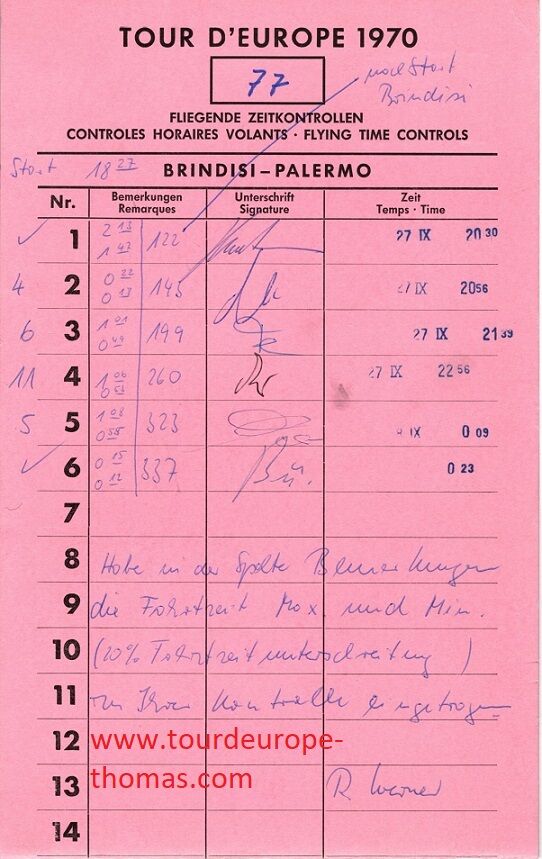 TOUR D'EUROPE 1970
77
nach Start
Brindisi
FLIEGENDE ZEITKONTROLLEN
CONTROLES HORAIRES VOLANTS · FLYING TIME CONTROLS
Start 18 27 BRINDISI – PALERMO
Nr. Bemerkungen Unterschrift Zeit
Remarques Signature Temps · Time
✓ 1 2 13 1 47 122 27 IX 20 30
4 2 0 22 0 13 145 27 IX 20 56
6 3 1 01 0 49 199 27 IX 21 39
11 4 1 06 0 53 260 27 IX 22 56
5 5 1 08 0 55 323 IX 0 09
✓ 6 0 15 0 12 337 0 23
7
8 Habe in der Spalte Bemerkungen
9 die Fahrtzeit Max. und Min.
10 (20% Fahrtzeitunterschreitung)
11 zu Ihrer Kontrolle eingetragen
12 www.tourdeurope-
13 thomas.com R Werner
14